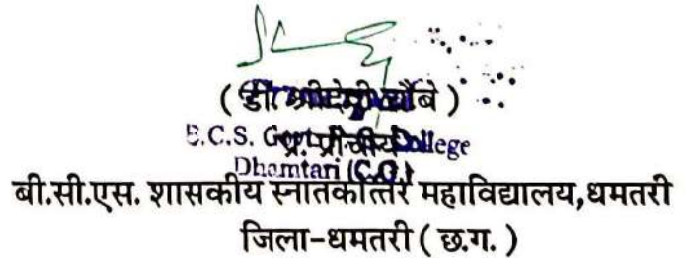 ( डॉ. श्रीदेवी चौबे )
प्र. प्राचार्य
B.C.S. Govt. College
Dhamtari (C.G.)
बी.सी.एस. शासकीय स्नातकोत्तर महाविद्यालय,धमतरी
जिला-धमतरी ( छ.ग. )